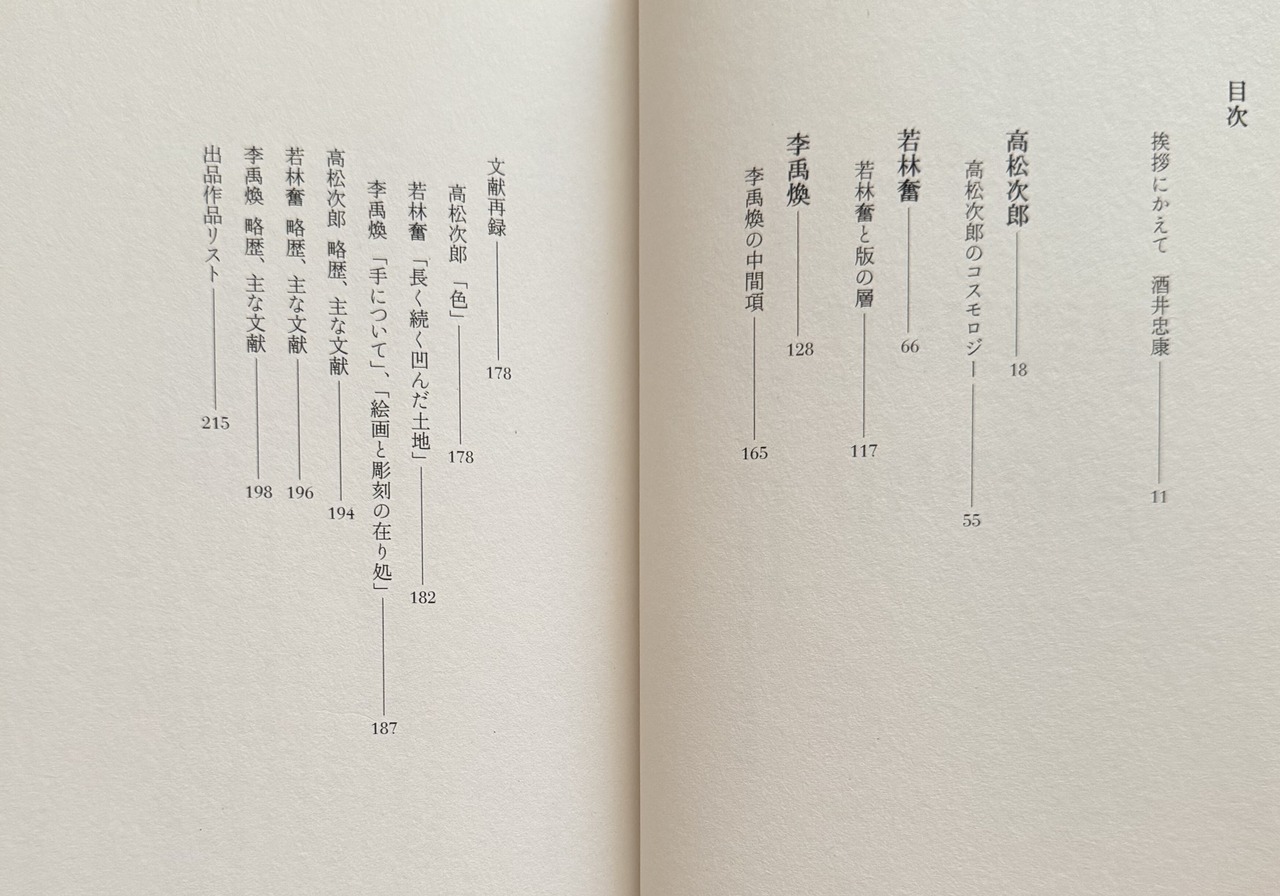 目次
挨拶にかえて 酒井忠康 11
高松次郎 18
高松次郎のコスモロジー 55
若林奮 66
若林奮と版の層 117
李禹煥 128
李禹煥の中間項 165
文献再録 178
高松次郎 「色」 178
若林奮 「長く続く凹んだ土地」 182
李禹煥 「手について」、「絵画と彫刻の在り処」 187
高松次郎 略歴、主な文献 194
若林奮 略歴、主な文献 196
李禹煥 略歴、主な文献 198
出品作品リスト 215